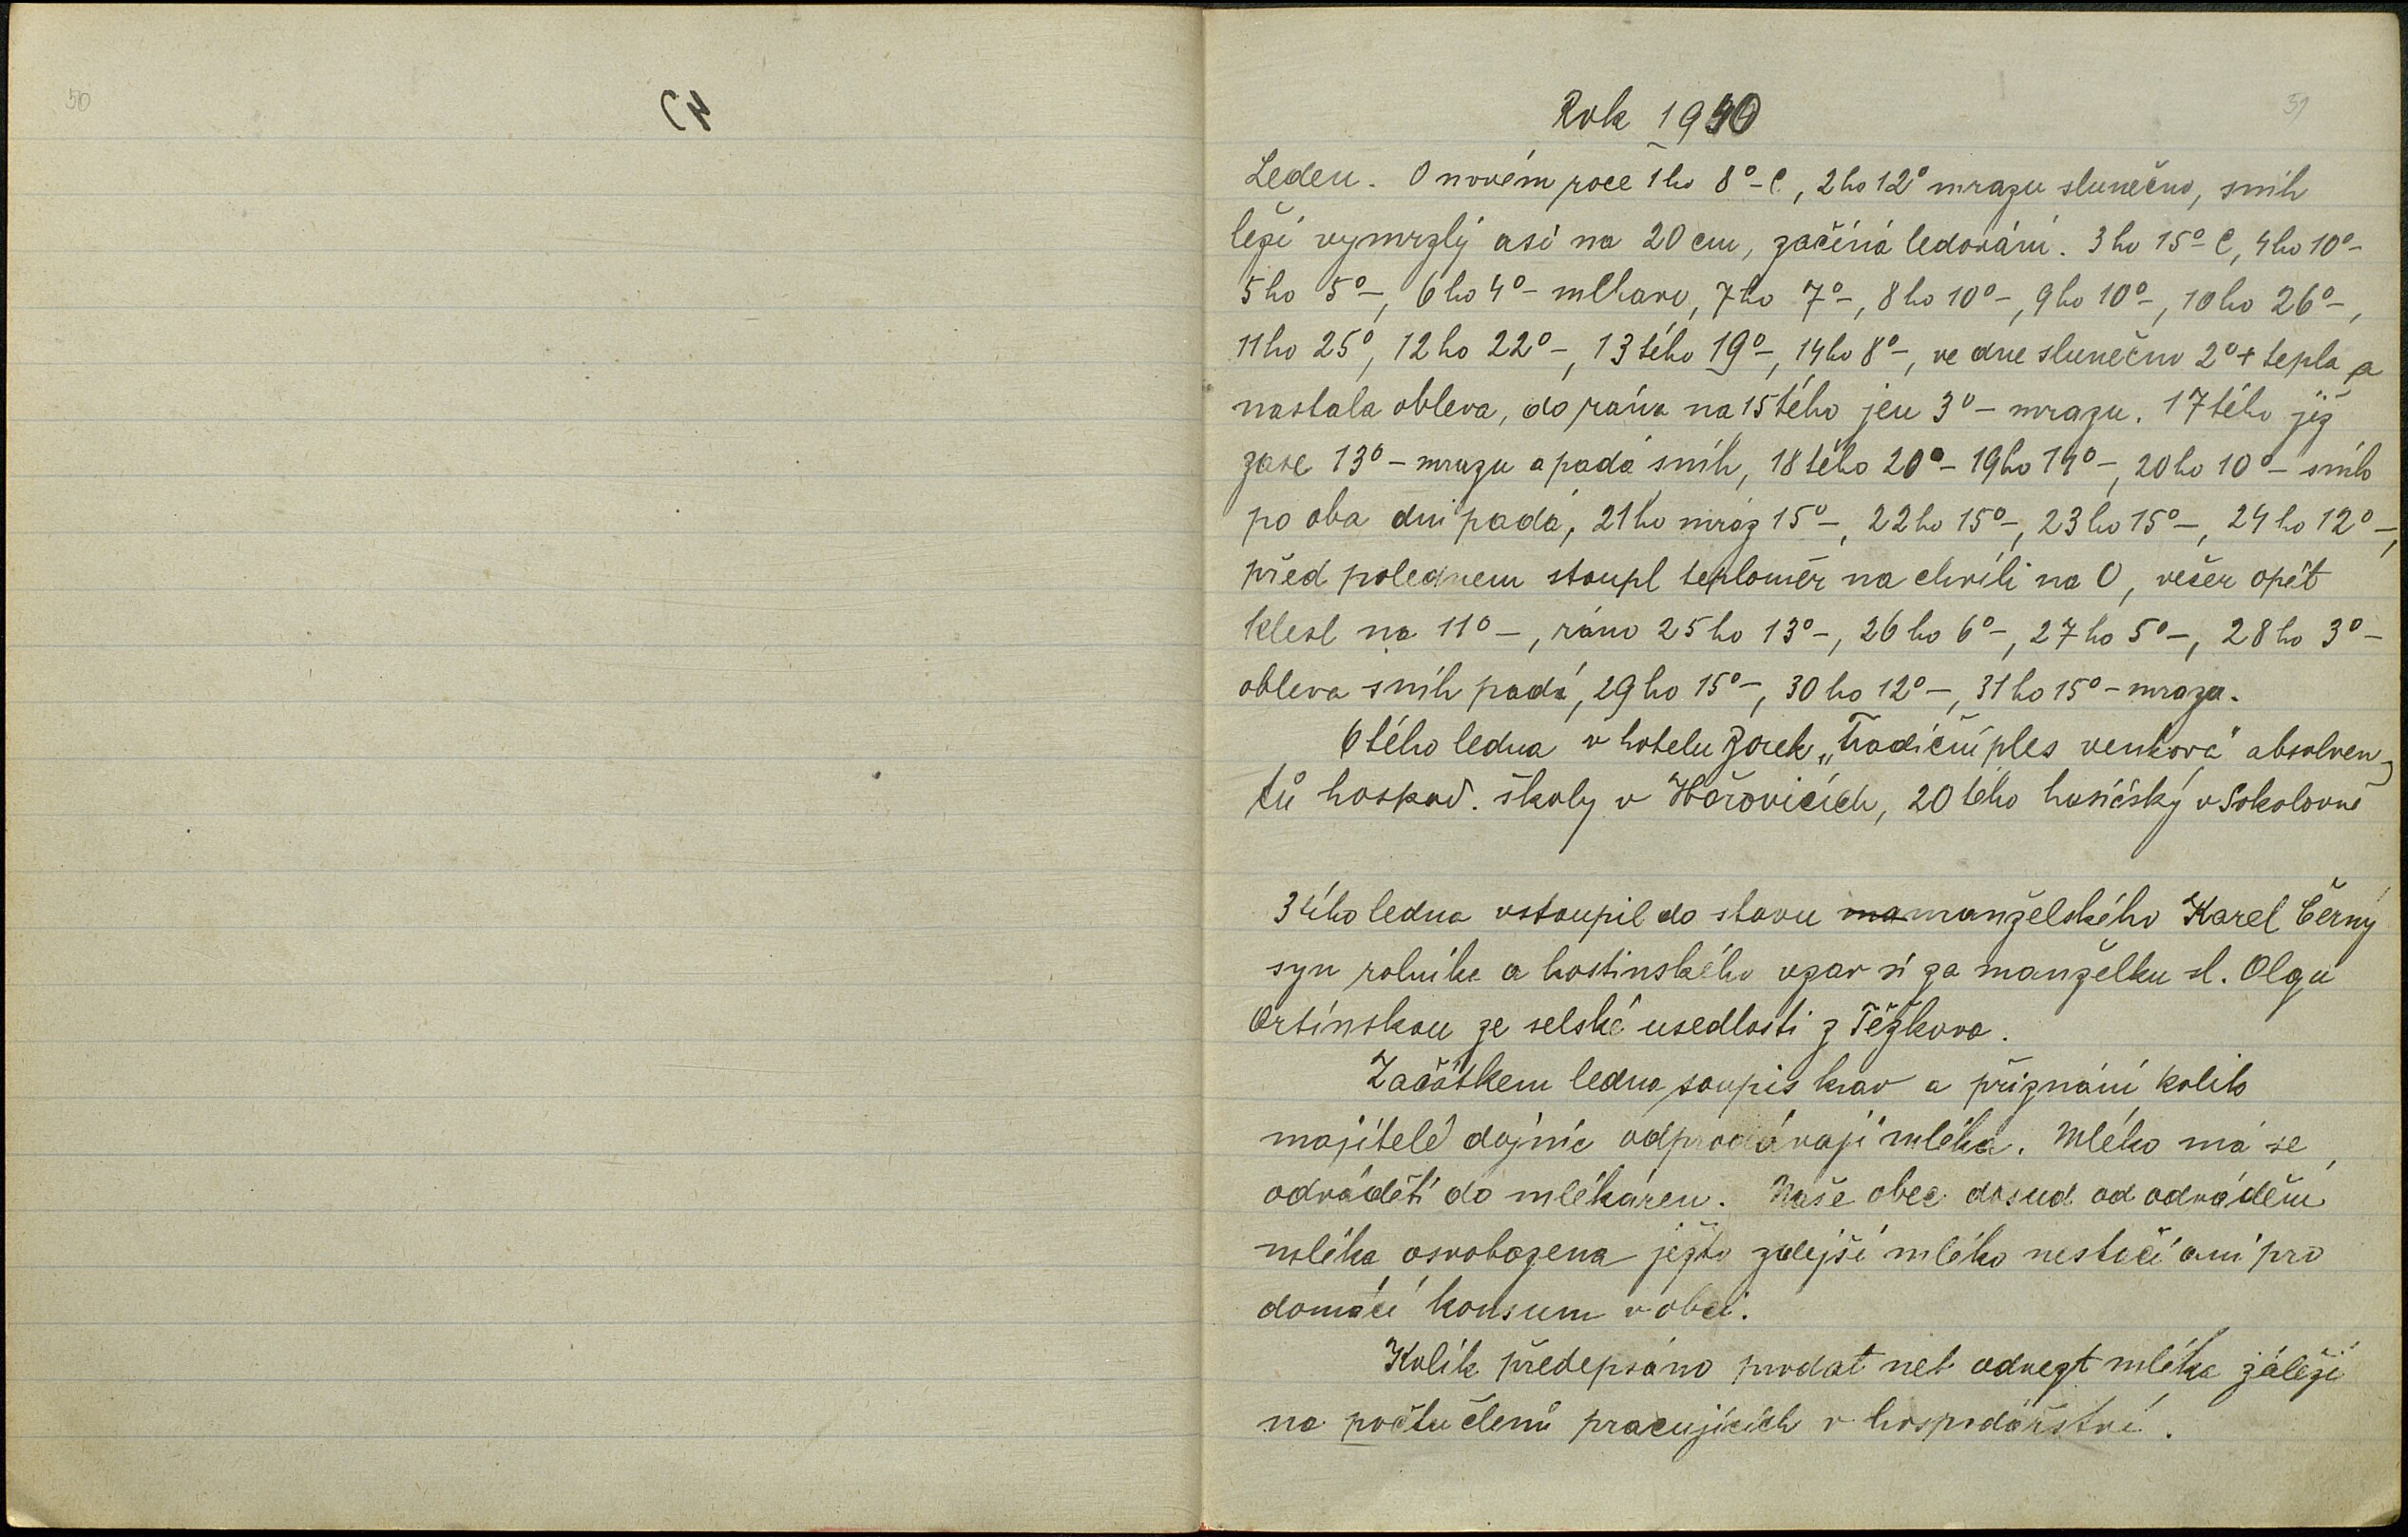 50
51
Rok 1940
Leden. O novém roce 1ho 8°-C, 2ho 12° mrazu slunečno, sníh
leží vymrzlý asi na 20 cm, začíná ledování. 3ho 15°-C, 4ho 10°-
5ho 5°-, 6ho 4°- mlhavo, 7ho 7°-, 8ho 10°-, 9ho 10°-, 10ho 26°-,
11ho 25°, 12ho 22°-, 13tého 19°-, 14ho 8°-, ve dne slunečno 2°+ tepla a
nastala obleva, do rána na 15tého jen 3°- mrazu. 17tého již
zase 13°- mrazu a padá sníh, 18tého 20°- 19ho 14°-, 20ho 10°- sníh
po oba dni padá, 21ho mráz 15°-, 22ho 15°-, 23ho 15°-, 24ho 12°-,
před polednem stoupl teploměr na chvíli na 0, večer opět
klesl na 11°-, ráno 25ho 13°-, 26ho 6°-, 27ho 5°-, 28ho 3°-
obleva sníh padá, 29ho 15°-, 30ho 12°-, 31ho 15°- mrazu.
6tého ledna v hotelu Zorek „Tradiční ples venkova" absolven-
tů hospod. školy v Hořovicích, 20tého hasičský v Sokolovně
3tího ledna vstoupil do stavu ma manželského Karel Černý
syn rolníka a hostinského vzav si za manželku sl. Olgu
Ortinskou ze selské usedlosti z Těžkova.
Začátkem ledna soupis krav a přiznání kolik
majitelé dojnic odprodávají mléka. Mléko má se
odváděti do mlékáren. Naše obec dosud od odvádění
mléka osvobozena ježto zdejší mléko nestačí ani pro
domácí konsum v obci.
Kolik předepsáno prodat neb odvezt mléka záleží
na počtu členů pracujících v hospodářství.